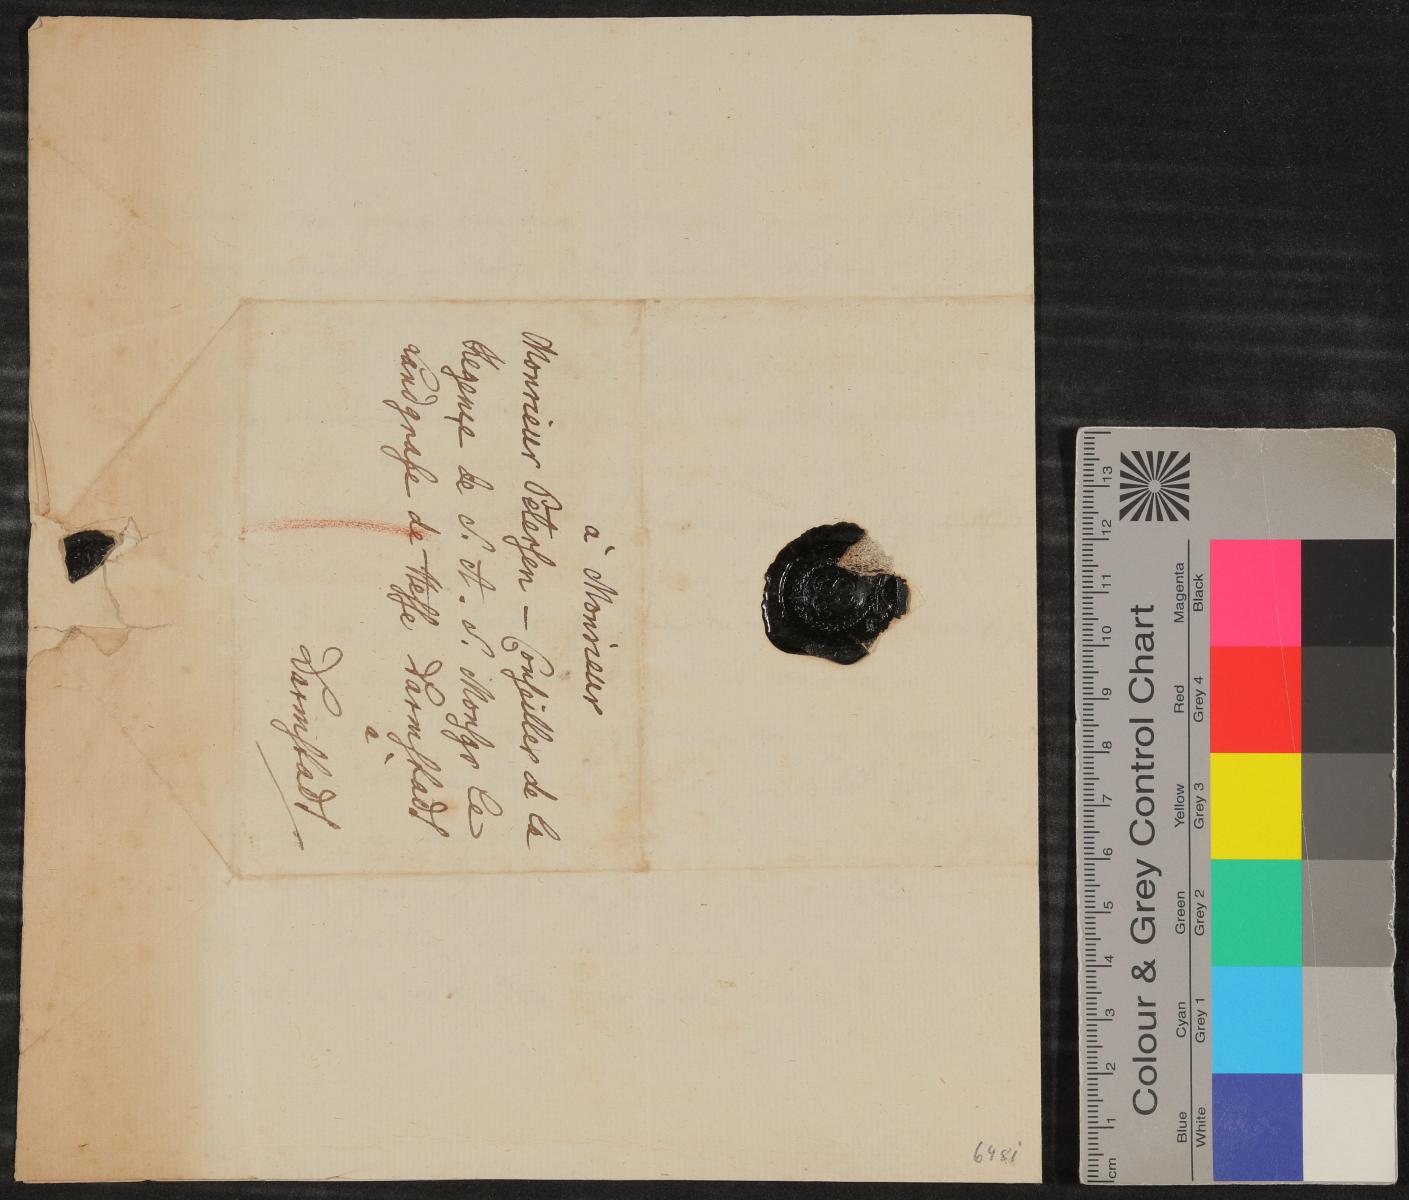 à Monsieur
Monsieur Petersen — Conseiller de la
Regence de S. A. S. Monsgr Le
Landgrafe de Hesse Darmstadt
à
Darmstadt
6481
Colour & Grey Control Chart
Blue Cyan Green Yellow Red Magenta
White Grey 1 Grey 2 Grey 3 Grey 4 Black
cm 1 2 3 4 5 6 7 8 9 10 11 12 13